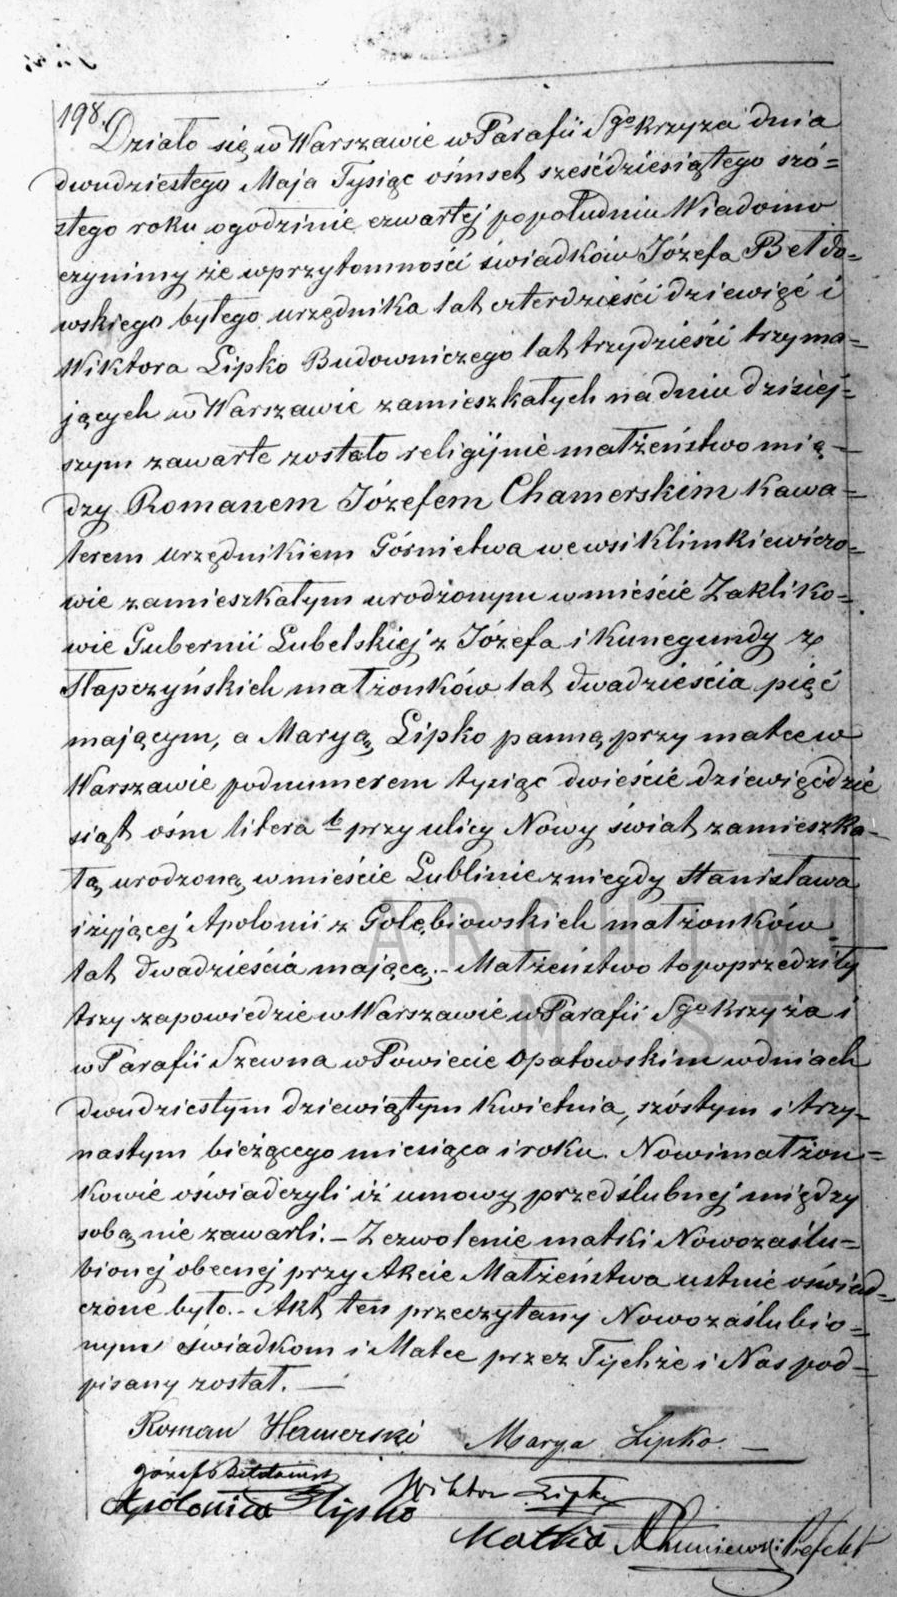 198.
Działo się w Warszawie w Parafii Sgo Krzyża dnia
dwudziestego Maja Tysiąc ośmset sześćdziesiątego szó=
stego roku o godzinie czwartej popołudniu Wiadomo
czynimy że w przytomności świadków Józefa Bełdo=
wskiego byłego urzędnika lat czterdzieści dziewięć i
Wiktora Lipko Budowniczego lat trzydzieści trzy ma=
jących w Warszawie zamieszkałych na dniu dzisiej=
szym zawarte zostało religijnie małżeństwo mię=
dzy Romanem Józefem Chamerskim Kawa=
lerem urzędnikiem Górnictwa we wsi Klimkiewiczo=
wie zamieszkałym urodzonym w mieście Zakliko=
wie Gubernii Lubelskiej z Józefa i Kunegundy z
Słapczyńskich małżonków lat dwadzieścia pięć
mającym, a Maryą Lipko panną, przy matce w
Warszawie pod numerem tysiąc dwieście dziewięćdzie
siąt ośm litera b przy ulicy Nowy świat zamieszka=
łą, urodzoną w mieście Lublinie z niegdy Stanisława
i żyjącej Apolonii z Gołębiowskich małżonków
lat dwadzieścia mającą.- Małżeństwo to poprzedziły
trzy zapowiedzie w Warszawie w Parafii Sgo Krzyża i
w Parafii Szewna w Powiecie Opatowskim w dniach
dwudziestym dziewiątym Kwietnia, szóstym i trzy=
nastym bieżącego miesiąca i roku. Nowi małżon=
kowie oświadczyli iż umowy przedślubnej między
sobą nie zawarli.- Zezwolenie matki Nowozaślu=
bionej obecnej przy Akcie Małżeństwa ustnie oświad=
czone było.- Akt ten przeczytany Nowozaślubio=
nym świadkom i Matce przez Tychże i Nas pod=
pisany został. —
Roman Hamerski Marya Lipko —
Józef Wiktor Lipko
Apolonia Lipko
Matka Prefekt
ARCHIW